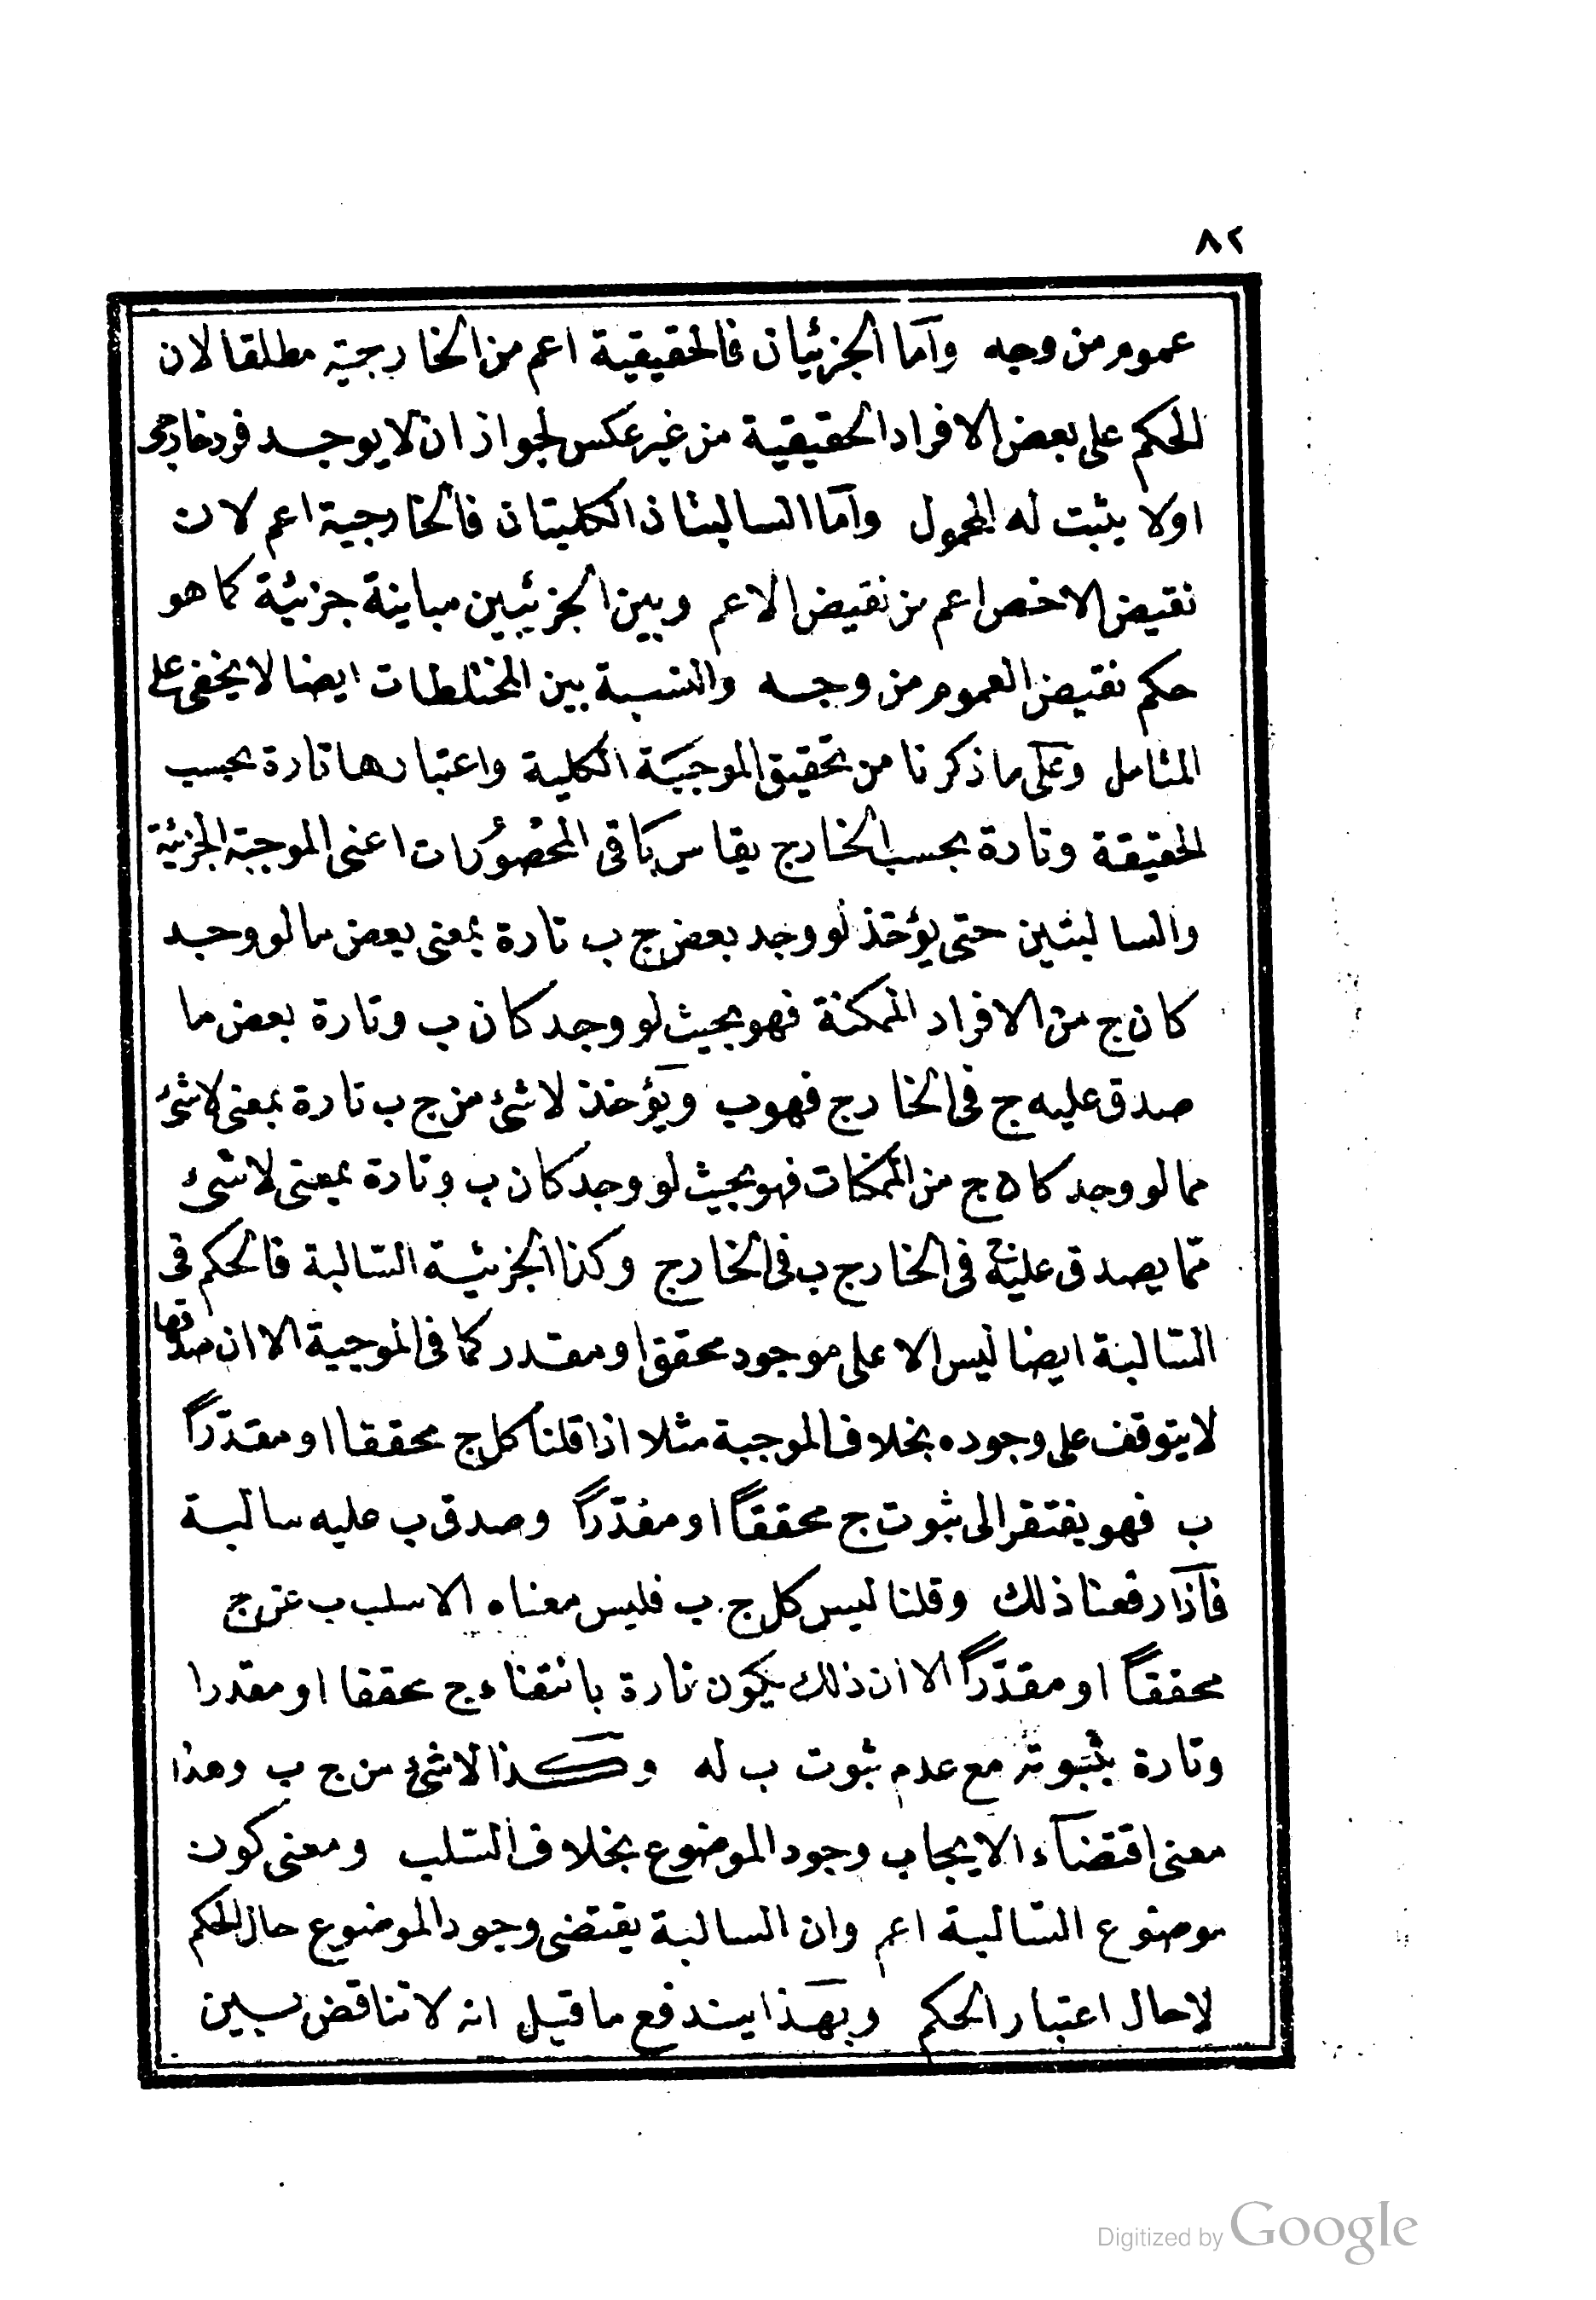 ٨٢
عموم من وجه وأما الجزئيان فالحقيقية اعم من الخارجية مطلقا لان
الحكم على بعض الافراد الحقيقية من غير عكس لجواز ان لا يوجد فرد خارجى
اولا يثبت له المحمول وأما السالبتان الكليتان فالخارجية اعم لان
نقيض الاخص اعم من نقيض الاعم وبين الجزئيين مباينة جزئية كما هو
حكم نقيض العموم من وجه والنسبة بين المختلطات ايضا لا يخفى على
المتامل وعلى ما ذكرنا من تحقيق الموجبة الكلية واعتبارها تارة بحسب
الحقيقة وتارة بحسب الخارج يقاس باقى المحصورات اعنى الموجبة الجزئية
والسالبتين حتى يؤخذ لو وجد بعض ج ب تارة بمعنى بعض ما لو وجد
كان ج من الافراد الممكنة فهو بحيث لو وجد كان ب وتارة بعض ما
صدق عليه ج فى الخارج فهو ب ويؤخذ لا شئ من ج ب تارة بمعنى لا شئ
مما لو وجد كان ج من الممكنات فهو بحيث لو وجد كان ب وتارة بمعنى لا شئ
مما يصدق عليه ج فى الخارج ب فى الخارج وكذا الجزئية السالبة فالحكم فى
السالبة ايضا ليس الا على موجود محقق او مقدر كما فى الموجبة الا ان صدقها
لا يتوقف على وجوده بخلاف الموجبة مثلا اذا قلنا كل ج محققا او مقدّراً
ب فهو يفتقر الى ثبوت ج محققاً او مقدّراً وصدق ب عليه سالبة
فاذا رفعنا ذلك وقلنا ليس كل ج ب فليس معناه الا سلب ب عن ج
محققاً او مقدّراً الا ان ذلك يكون تارة بانتفاء ج محققا او مقدرا
وتارة بثبوته مع عدم ثبوت ب له وكذا لا شئ من ج ب وهذا
معنى اقتضاء الايجاب وجود الموضوع بخلاف السلب ومعنى كون
موضوع السالبة اعم وان السالبة يقتضى وجود الموضوع حال الحكم
لا حال اعتبار الحكم وبهذا يندفع ما قيل انه لا تناقض بين
Digitized by Google